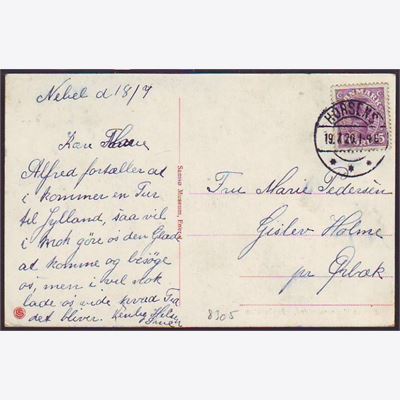 Nebel d 18/7
Kære
Alfred fortæller at
i kommer en Tur
til Jylland, saa vil
i nok göre os den Glæde
at komme og besöge
os, men i vil nok
lade os vide hvad Tid
det bliver. Kærlig Hilsen
Samsø Museum,
DANMARK
15
HORSENS
19.7.20.
Fru Marie Pedersen
Gislev Holme
pr Ørbæk
8305